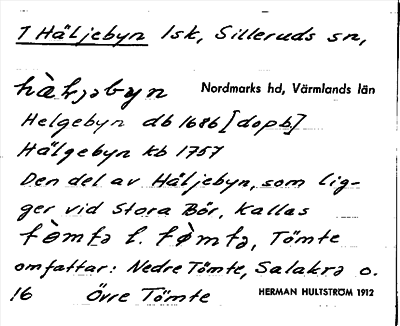 1 Häljebyn lsk, Silleruds sn,
hàl̡jəbyn Nordmarks hd, Värmlands län
Helgebyn db 1686 [dopb.]
Hälgebyn kb 1757
Den del av Häljebyn, som lig-
ger vid Stora Bör, kallas
l. Tömte
omfattar: Nedre Tömte, Salakra o.
16 Övre Tömte HERMAN HULTSTRÖM 1912